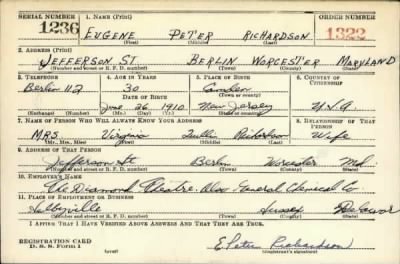 SERIAL NUMBER 1. NAME (Print) ORDER NUMBER
1236 EUGENE PETER RICHARDSON 1322
(First) (Middle) (Last)
2. ADDRESS (Print)
JEFFERSON ST. BERLIN WORCESTER MARYLAND
(Number and street or R. F. D. number) (Town) (County) (State)
3. TELEPHONE 4. AGE IN YEARS 5. PLACE OF BIRTH 6. COUNTRY OF CITIZENSHIP
Berlin 112 30 Camden
DATE OF BIRTH (Town or county)
June 26 1910 New Jersey U.S.A
(Exchange) (Number) (Mo.) (Day) (Yr.) (State or country)
7. NAME OF PERSON WHO WILL ALWAYS KNOW YOUR ADDRESS 8. RELATIONSHIP OF THAT PERSON
MRS. Virginia Richardson Wife
(Mr., Mrs., Miss) (First) (Middle) (Last)
9. ADDRESS OF THAT PERSON
Jefferson St Berlin Worcester Md.
(Number and street or R. F. D. number) (Town) (County) (State)
10. EMPLOYER'S NAME
The Diamond Theatre. Also General Chemical Co
11. PLACE OF EMPLOYMENT OR BUSINESS
Selbyville Sussex Delawar
(Number and street or R. F. D. number) (Town) (County) (State)
I AFFIRM THAT I HAVE VERIFIED ABOVE ANSWERS AND THAT THEY ARE TRUE.
REGISTRATION CARD
D. S. S. Form 1 (over) E Peter Richardson
(Registrant's signature)